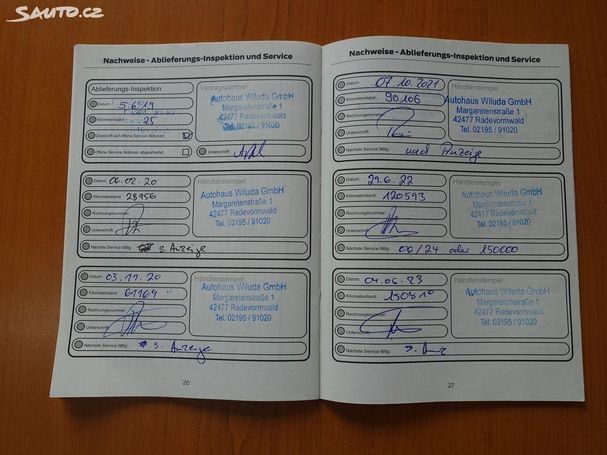 SAUTO.CZ
Nachweise - Ablieferungs-Inspektion und Service
Ablieferungs-Inspektion
Datum: 5.6.19
Kilometerstand: 25
Überprüft auf offene Service Aktionen
Offene Service Aktionen abgearbeitet:
Vertragspartner
Autohaus Wiluda GmbH
Margaretenstraße 1
42477 Radevormwald
Tel. 02195 / 91020
Unterschrift:
Datum: 06.02.20
Kilometerstand: 28956
Rechnungsnummer:
Unterschrift:
Händlerstempel
Autohaus Wiluda GmbH
Margaretenstraße 1
42477 Radevormwald
Tel. 02195 / 91020
Nächste Service fällig: s. Anzeige
Datum: 03.11.20
Kilometerstand: 61164
Rechnungsnummer:
Unterschrift:
Händlerstempel
Autohaus Wiluda GmbH
Margaretenstraße 1
42477 Radevormwald
Tel. 02195 / 91020
Nächste Service fällig: s. Anzeige
26
Nachweise - Ablieferungs-Inspektion und Service
Datum: 07.10.2021
Kilometerstand: 90106
Rechnungsnummer:
Unterschrift:
Autohaus Wiluda GmbH
Margaretenstraße 1
42477 Radevormwald
Tel. 02195 / 91020
Nächste Service fällig: nach Anzeige
Datum: 29.6.22
Kilometerstand: 120593
Rechnungsnummer:
Unterschrift:
Händlerstempel
Autohaus Wiluda GmbH
Margaretenstraße 1
42477 Radevormwald
Tel. 02195 / 91020
Nächste Service fällig: 06/24 oder 150000
Datum: 04.05.23
Kilometerstand:
Rechnungsnummer:
Unterschrift:
Händlerstempel
Autohaus Wiluda GmbH
Margaretenstraße 1
42477 Radevormwald
Tel. 02195 / 91020
Nächste Service fällig: s.
27